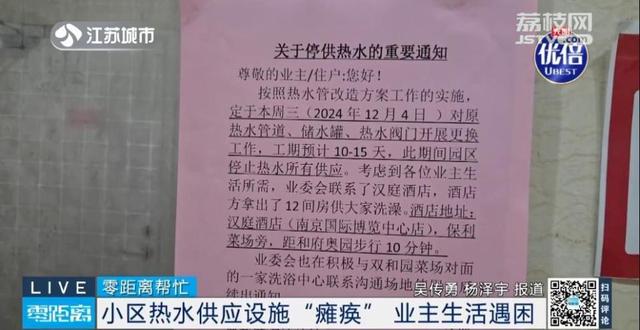 江苏城市
荔枝网
JSTV.COM
天猫
优倍
UBEST
关于停供热水的重要通知
尊敬的业主/住户:您好！
按照热水管改造方案工作的实施，
定于本周三（2024年12月4日）对原
热水管道、储水罐、热水阀门开展更换
工作，工期预计10-15天，此期间园区
停止热水所有供应。考虑到各位业主生
活所需，业委会联系了汉庭酒店，酒店
方拿出了12间房供大家洗澡。酒店地址：
汉庭酒店（南京国际博览中心店），保利
菜场旁，距和府奥园步行10分钟。
业委会也在积极与双和园菜场对面
的一家洗浴中心联系沟通场地
续出通知
LIVE
零距离帮忙
吴传勇 杨泽宇 报道
零距离
小区热水供应设施“瘫痪” 业主生活遇困
扫码评论